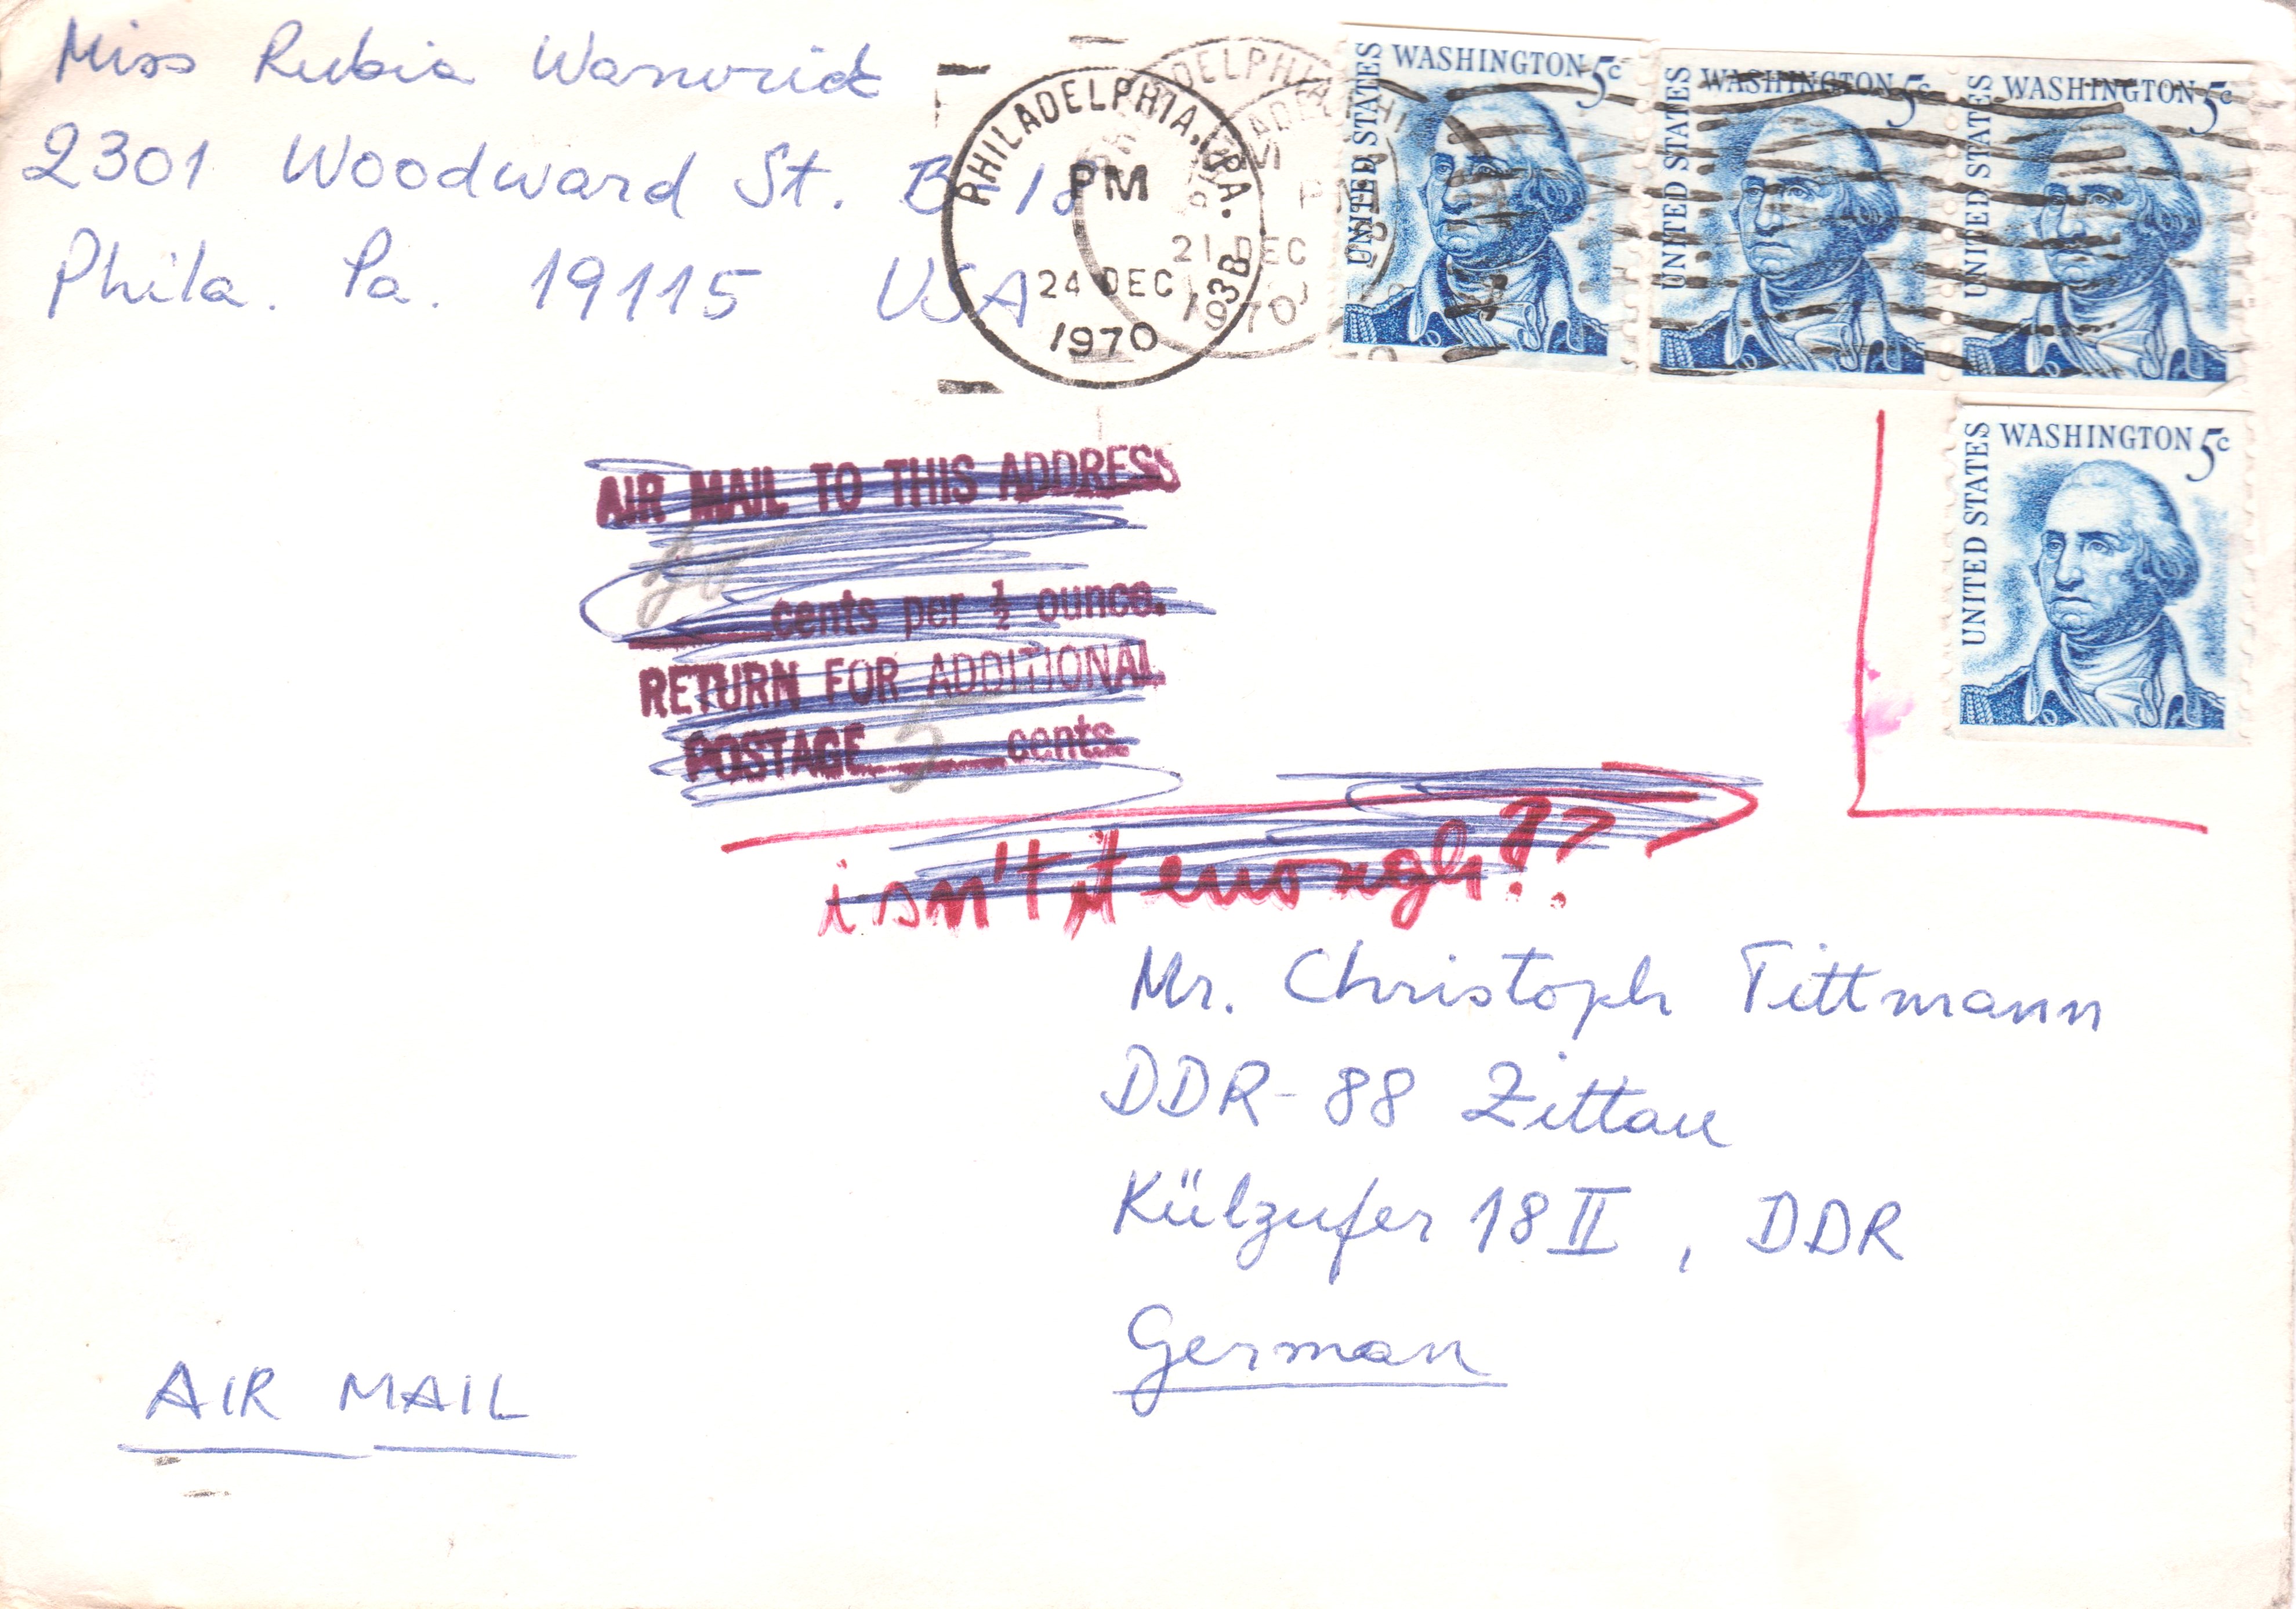 Miss Rubia
2301 Woodward St. B 18
Phila. Pa. 19115 USA
PHILADELPHIA, PA.
PM
24 DEC
1970
13B
PM
21 DEC
1970
UNITED STATES WASHINGTON 5c
UNITED STATES WASHINGTON 5c
UNITED STATES WASHINGTON 5c
UNITED STATES WASHINGTON 5c
AIR MAIL TO THIS ADDRESS
20 cents per ½ ounce.
RETURN FOR ADDITIONAL
POSTAGE 5 cents.
isn't it enough??
Mr. Christoph Tittmann
DDR-88 Zittau
Külzufer 18 II, DDR
German
AIR MAIL